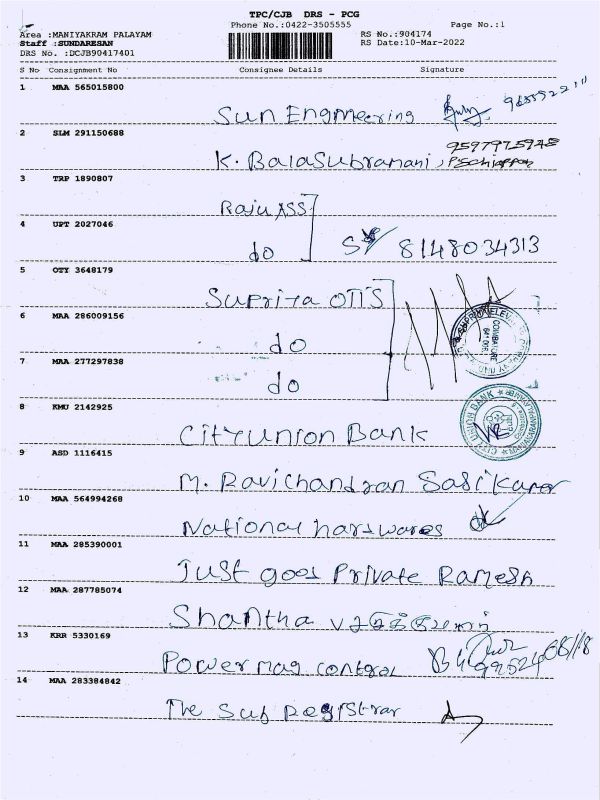 TPC/CJB DRS - PCG
Phone No.:0422-3505555 Page No.:1
Area :MANIYAKRAM PALAYAM RS No.:904174
Staff :SUNDARESAN RS Date:10-Mar-2022
DRS No. :DCJB90417401
S No Consignment No Consignee Details Signature
1 MAA 565015800
Sun Engineering
2 SLM 291150688
K. Balasubramani,
3 TRP 1890807
Raju ASS
4 UPT 2027046
do 8148034313
5 OTY 3648179
Supriya OTIS
6 MAA 286009156
do
7 MAA 277297838
do
8 KMU 2142925
City Union Bank
9 ASD 1116415
M. Ravichandran Sasikumar
10 MAA 564994268
National hardwares
11 MAA 285390001
Just good Private Ramesh
12 MAA 287785074
Shantha
13 KRR 5330169
Power mag control
14 MAA 283384842
The Sub Registrar
COIMBATORE
CITY UNION BANK